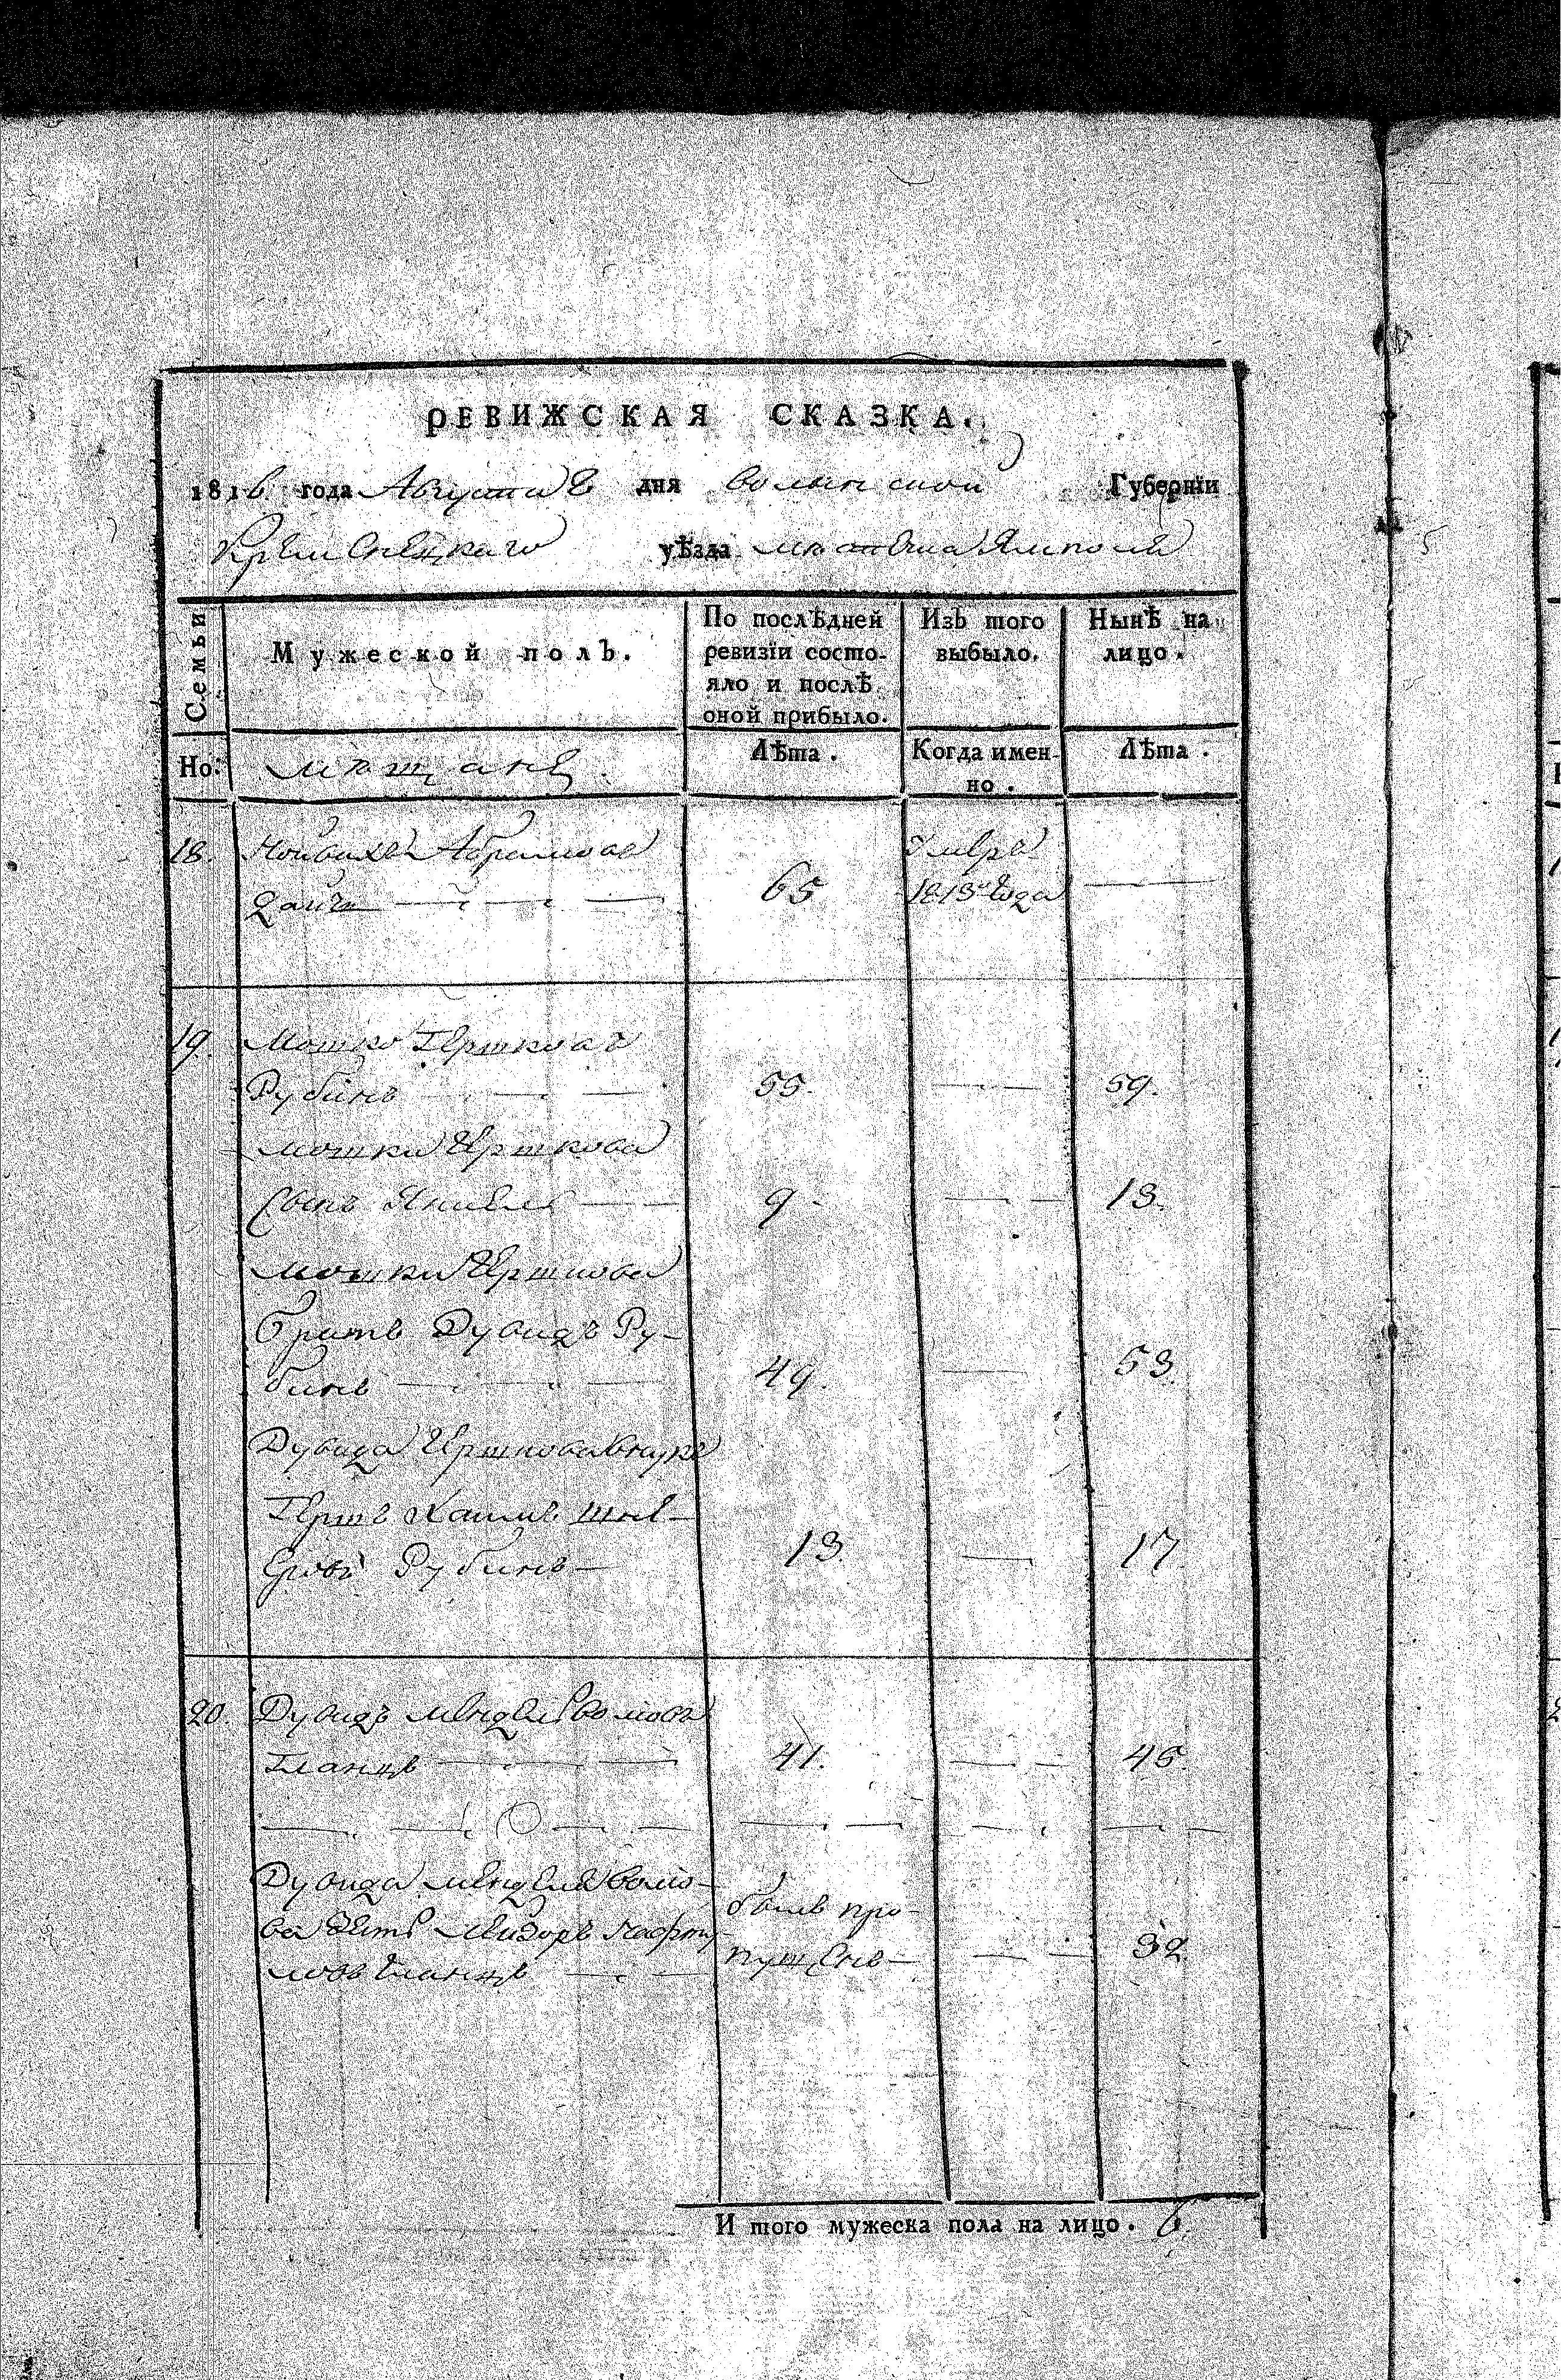 РЕВИЖСКАЯ СКАЗКА.
1816 года Августа 8 дня Волынской Губернїи
Кременецкаго уѣзда местечка Ямполя
Семьи
Мужеской полъ.
По послѣдней ревизїи состо-
яло и послѣ
оной прибыло.
Изъ того
выбыло.
Нынѣ на
лицо.
Но:
мѣщане
Лѣта.
Когда имен-
но.
Лѣта.
18. Абрамовъ умре
65 1813 года
19. Мошко Гершковъ
Рубинъ 55. 59.
Мошки Гершкова
сынъ Янкель 9 13.
Мошки Гершкова
братъ Дувидъ Ру-
бинъ 49. 53.
Дувида Гершкова внукъ
Гершъ Хаимъ
Рубинъ 13. 17.
20. Дувидъ Мендель
Гланцъ 41. 45.
Дувида Менделя
ва зять былъ про-
Гланцъ пущенъ 32.
И того мужеска пола на лицо. 6.